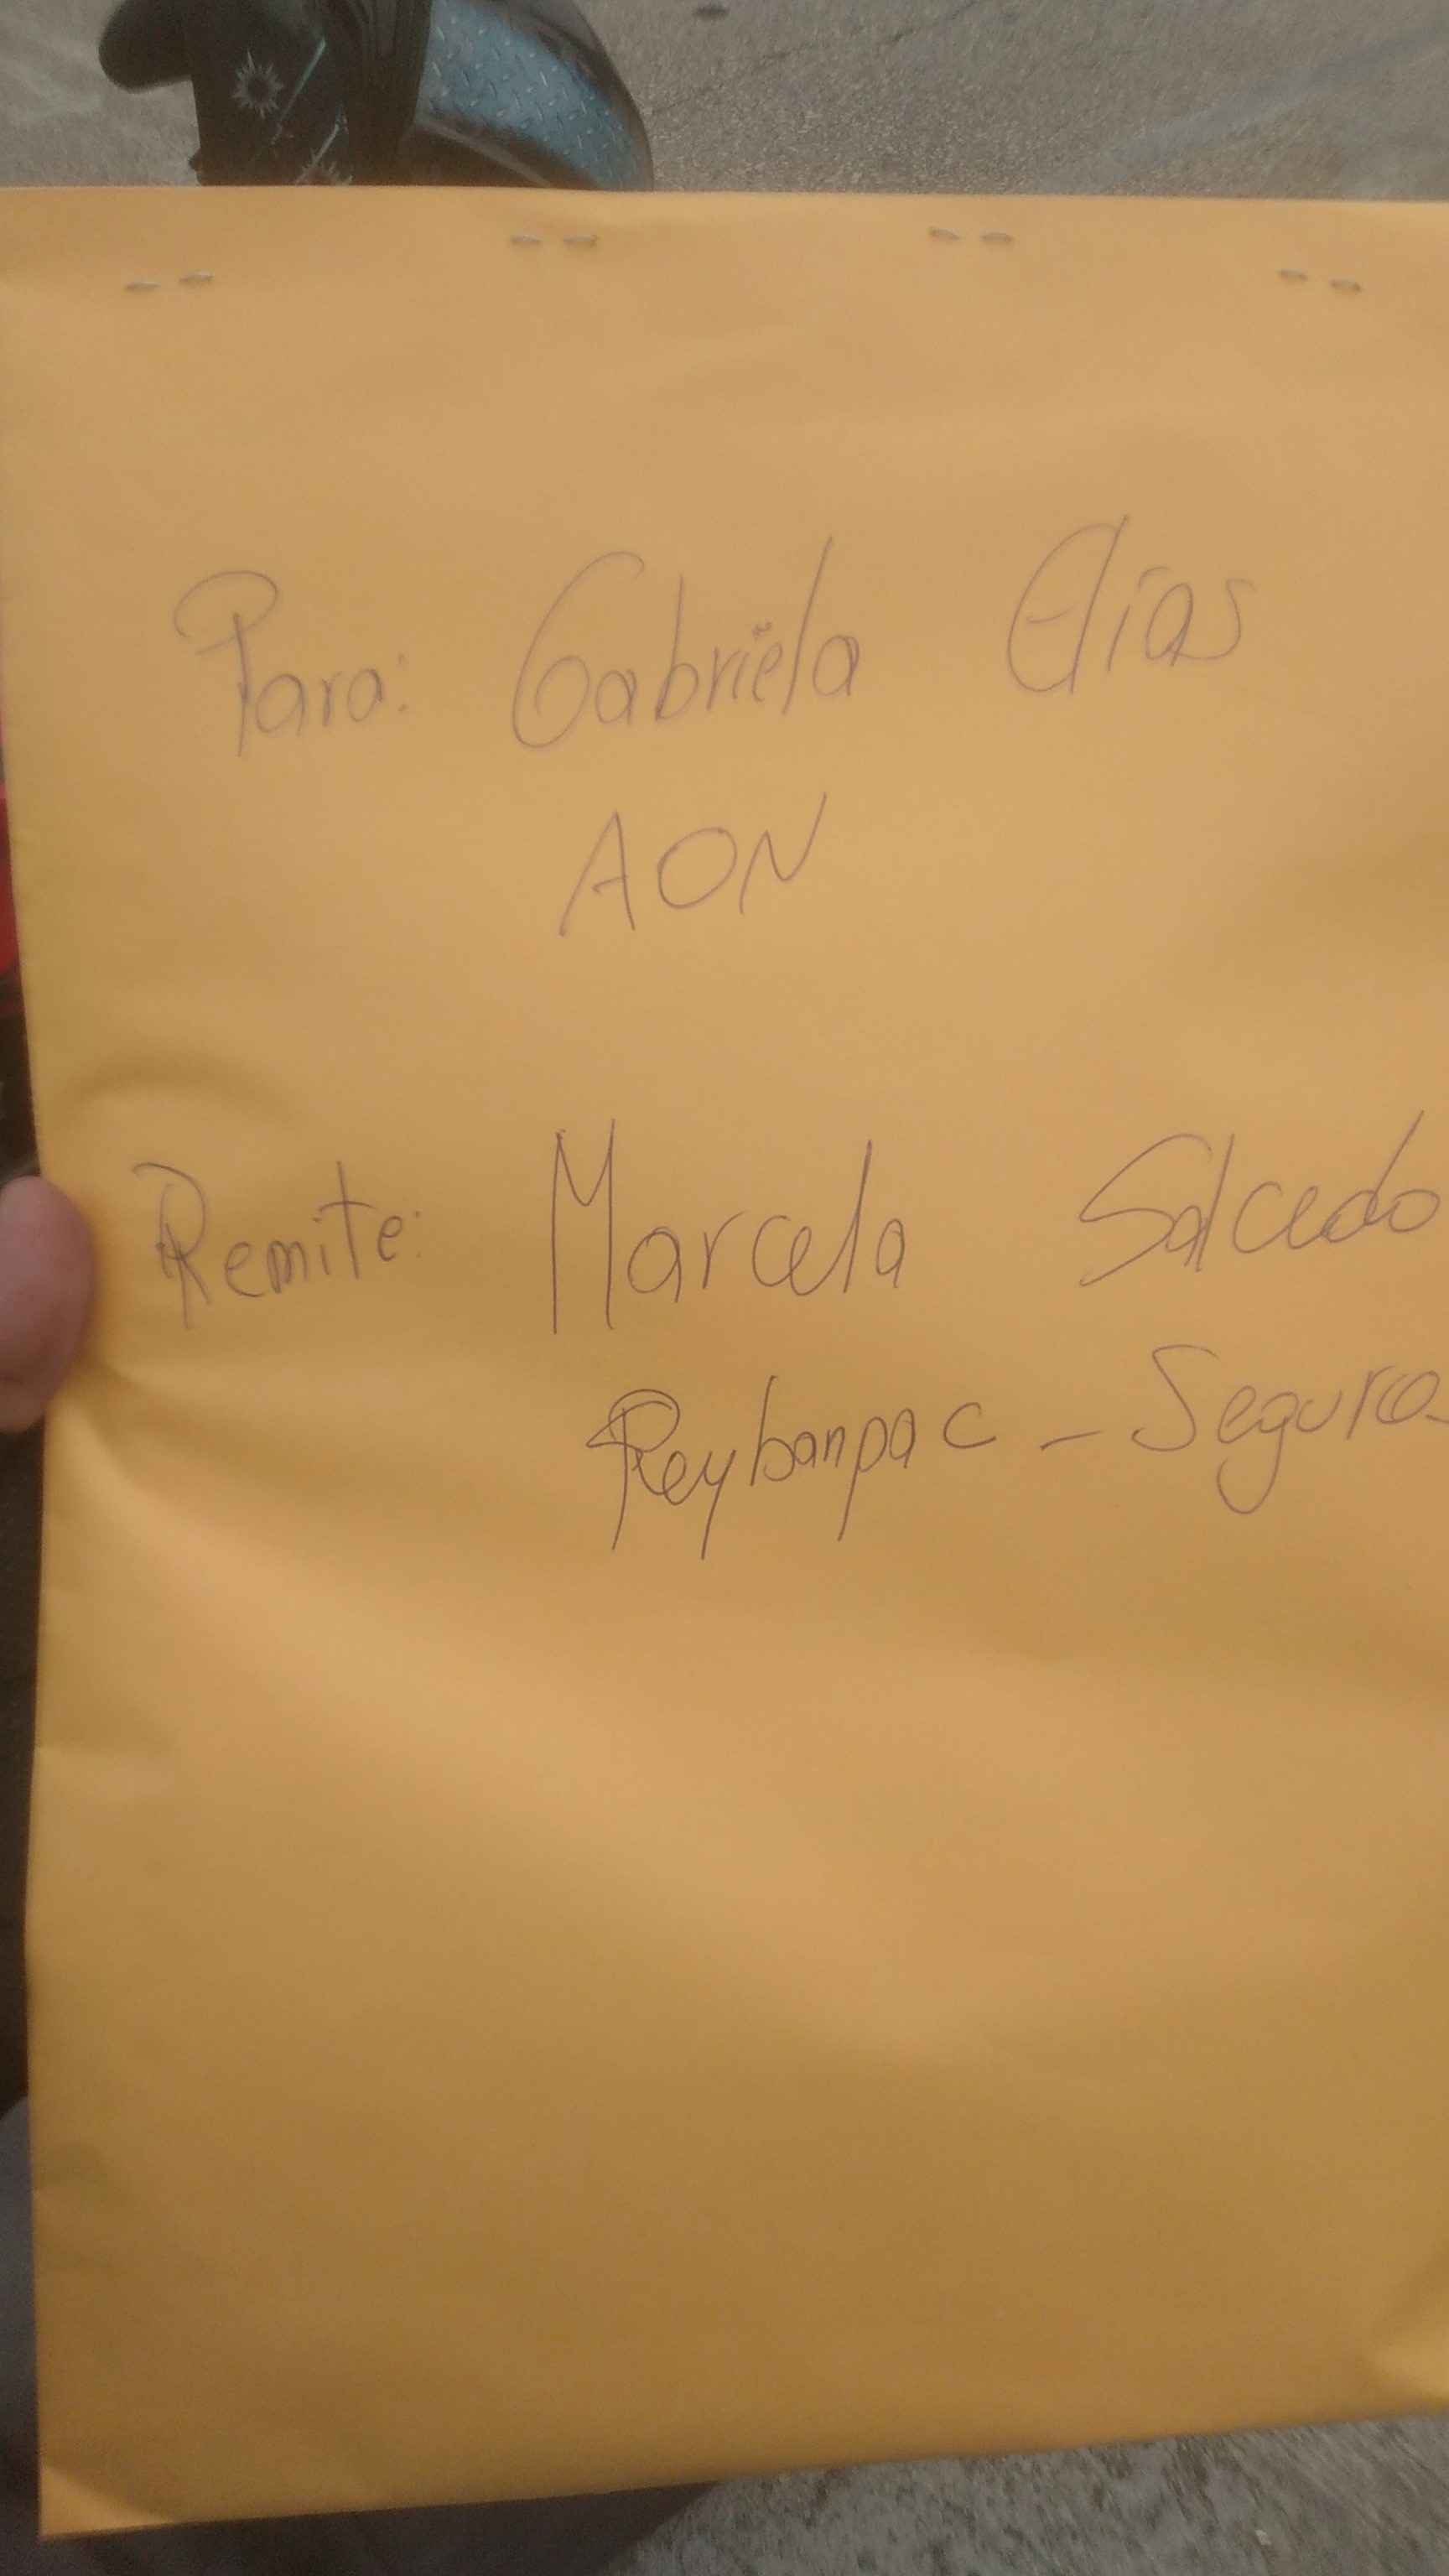 Para: Gabriela Elías
AON
Remite: Marcela Salcedo
Reybanpac - Seguros